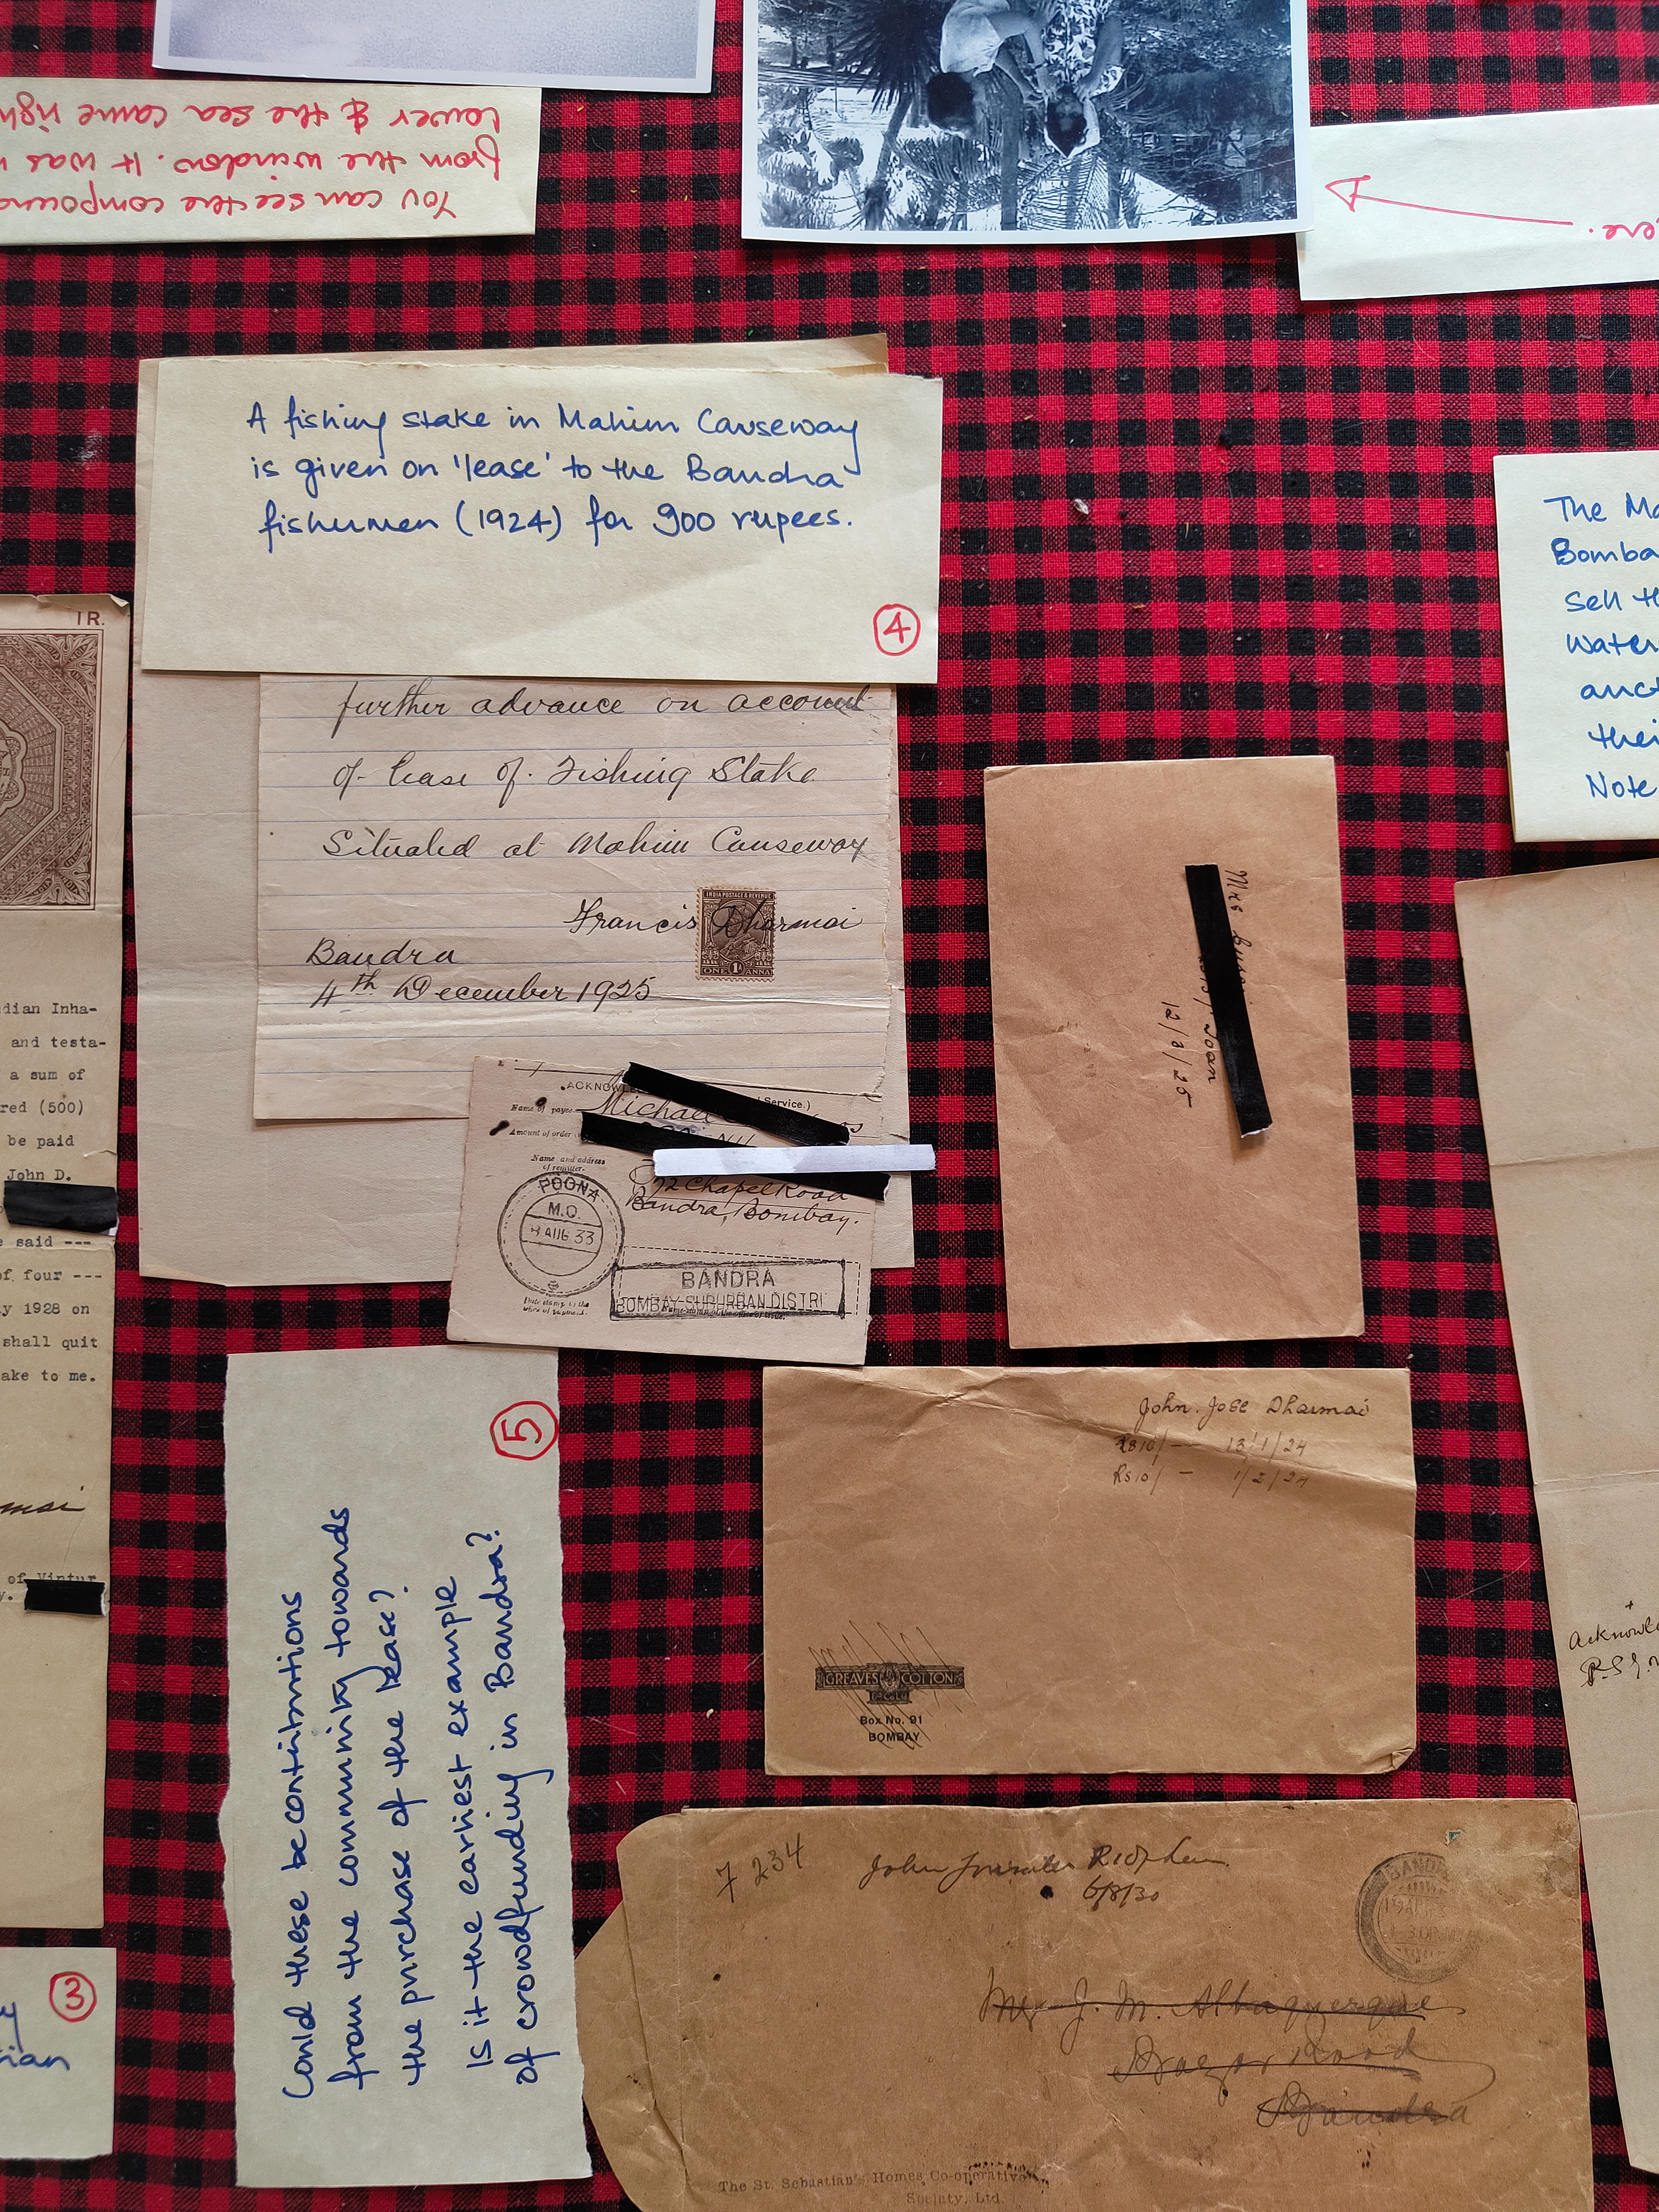 You can see the compound
from the window. It was
lower & the sea came righ
ere.
A fishing stake in Mahim Causeway
is given on 'lease' to the Bandra
fishermen (1924) for 900 rupees.
4
further advance on account
of lease of Fishing Stake
Situated at Mahim Causeway
Francis Dharmai
INDIA POSTAGE & REVENUE
ONE 1 ANNA
Bandra
4th December 1925
ACKNOWLE
Service.)
Name of payee
Michael
Amount of order
Name and address
of remitter.
72 Chapel Road
Bandra, Bombay.
POONA
M.O.
AUG 33
BANDRA
BOMBAY SUBURBAN DISTRI
1 R.
dian Inha-
and testa-
a sum of
red (500)
be paid
John D.
e said ---
of four ---
y 1928 on
shall quit
ake to me.
mai
of Vintur
y.
3
ian
5
Could these be contributions
from the community towards
the purchase of the lease?
Is it the earliest example
of crowdfunding in Bandra?
Mrs
Joan
12/8/25
The Ma
Bomba
sell th
water
auct
thei
Note
John Jose Dharmai
Rs 10/- — 13/1/24
Rs 10/- — 1/2/24
GREAVES COTTON
& CO LD
Box No. 91
BOMBAY
7 234
John
6/8/30
BANDRA
Mr J. M. Albuquerque
Bazar Road
Bandra
The St. Sebastian's Homes Co-operative
Society, Ltd.
Acknowle